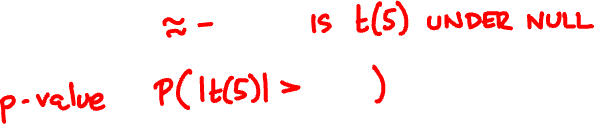 ≈ - is t(5) UNDER NULL
p-value P( |t(5)| > )